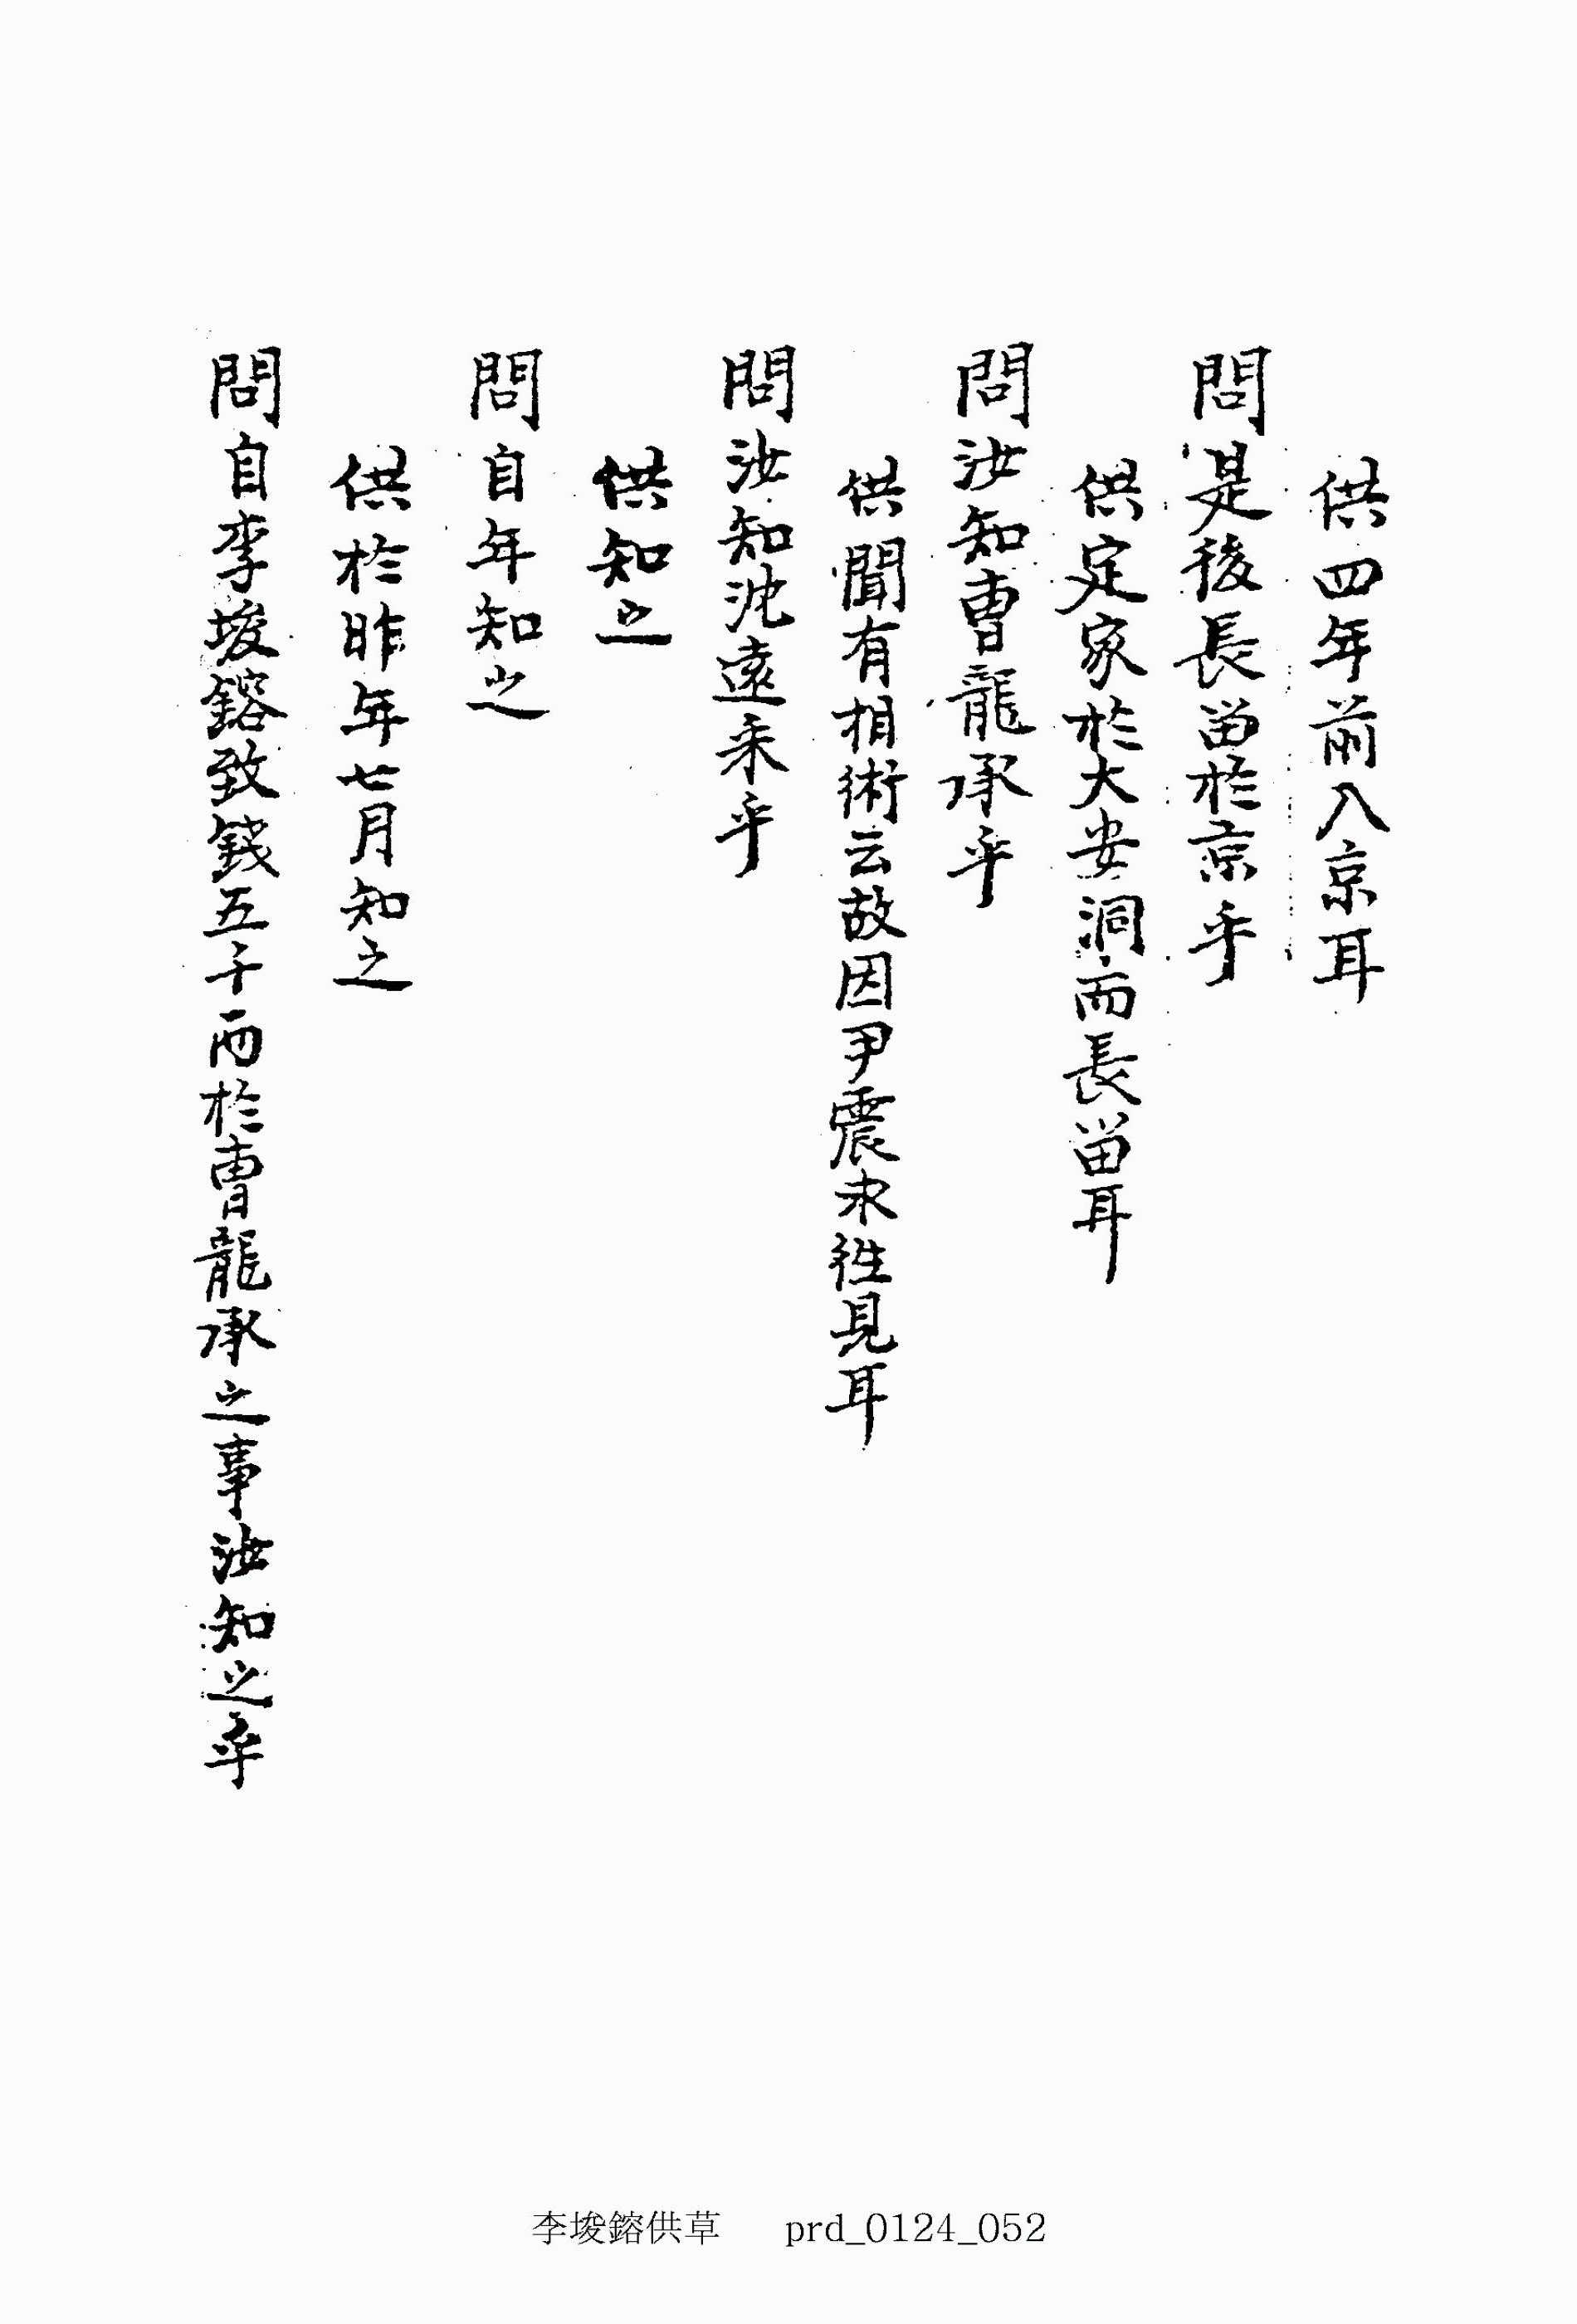 供四年前入京耳
問是後長留於京乎
供定家於大安洞而長留耳
問汝知曺龍承乎
供聞有相術云故因尹震求徃見耳
問汝知沈遠采乎
供知之
問自年知之
供於昨年七月知之
問自李埈鎔致錢五千兩於曺龍承之事汝知之乎
李埈鎔供草 prd_0124_052